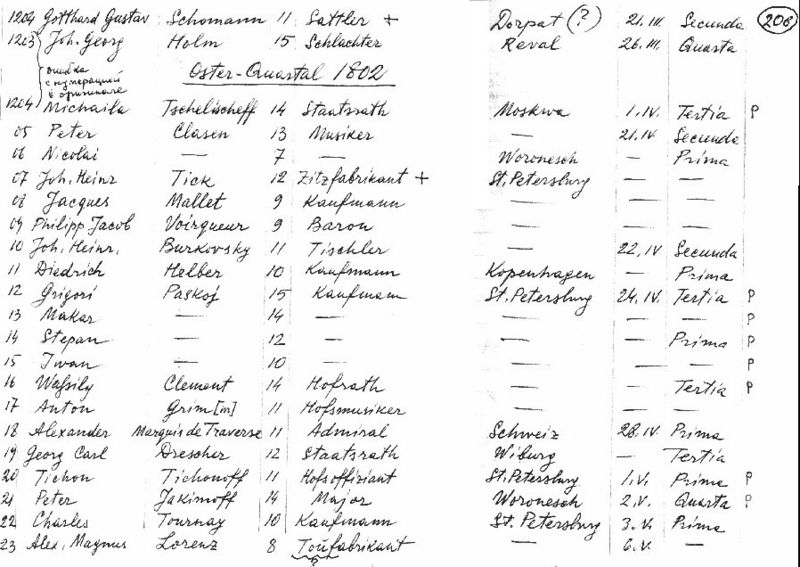 1204 Gotthard Gustav Schomann 11 Sattler + Dorpat (?) 21.III. Secunda 206
1203 Joh. Georg Holm 15 Schlachter Reval 26.III. Quarta
ошибка
с нумерацией
в оригинале
Oster-Quartal 1802
1204 Michaila Tschelischeff 14 Staatsrath Moskwa 1.IV. Tertia P
05 Peter Clasen 13 Musiker — 21.IV. Secunda
06 Nicolai — 7 — Woronesch — Prima
07 Joh. Heinr Tick 12 Zitzfabrikant + St. Petersburg — —
08 Jacques Mallet 9 Kaufmann — — —
09 Philipp Jacob Voirqueur 9 Baron — — —
10 Joh. Heinr. Burkovsky 11 Tischler — 22.IV Secunda
11 Diedrich Helber 10 Kaufmann Kopenhagen — Prima
12 Grigori Paskoj 15 Kaufmann St. Petersburg 24.IV. Tertia P
13 Makar — 14 — — — — P
14 Stepan — 12 — — — Prima P
15 Iwan — 10 — — — — P
16 Waßily Clement 14 Hofrath — — Tertia P
17 Anton Grim[m] 11 Hofsmusiker — — —
18 Alexander Marquis de Traverse 11 Admiral Schweiz 28.IV. Prima
19 Georg Carl Drescher 12 Staatsrath Wiburg — Tertia
20 Tichon Tichonoff 11 Hofsoffiziant St. Petersburg 1.V. Prima P
21 Peter Jakimoff 14 Major Woronesch 2.V. Quarta P
22 Charles Tournay 10 Kaufmann St. Petersburg 3.V. Prima
23 Alex. Magnus Lorenz 8 Toufabrikant — 6.V. —
?